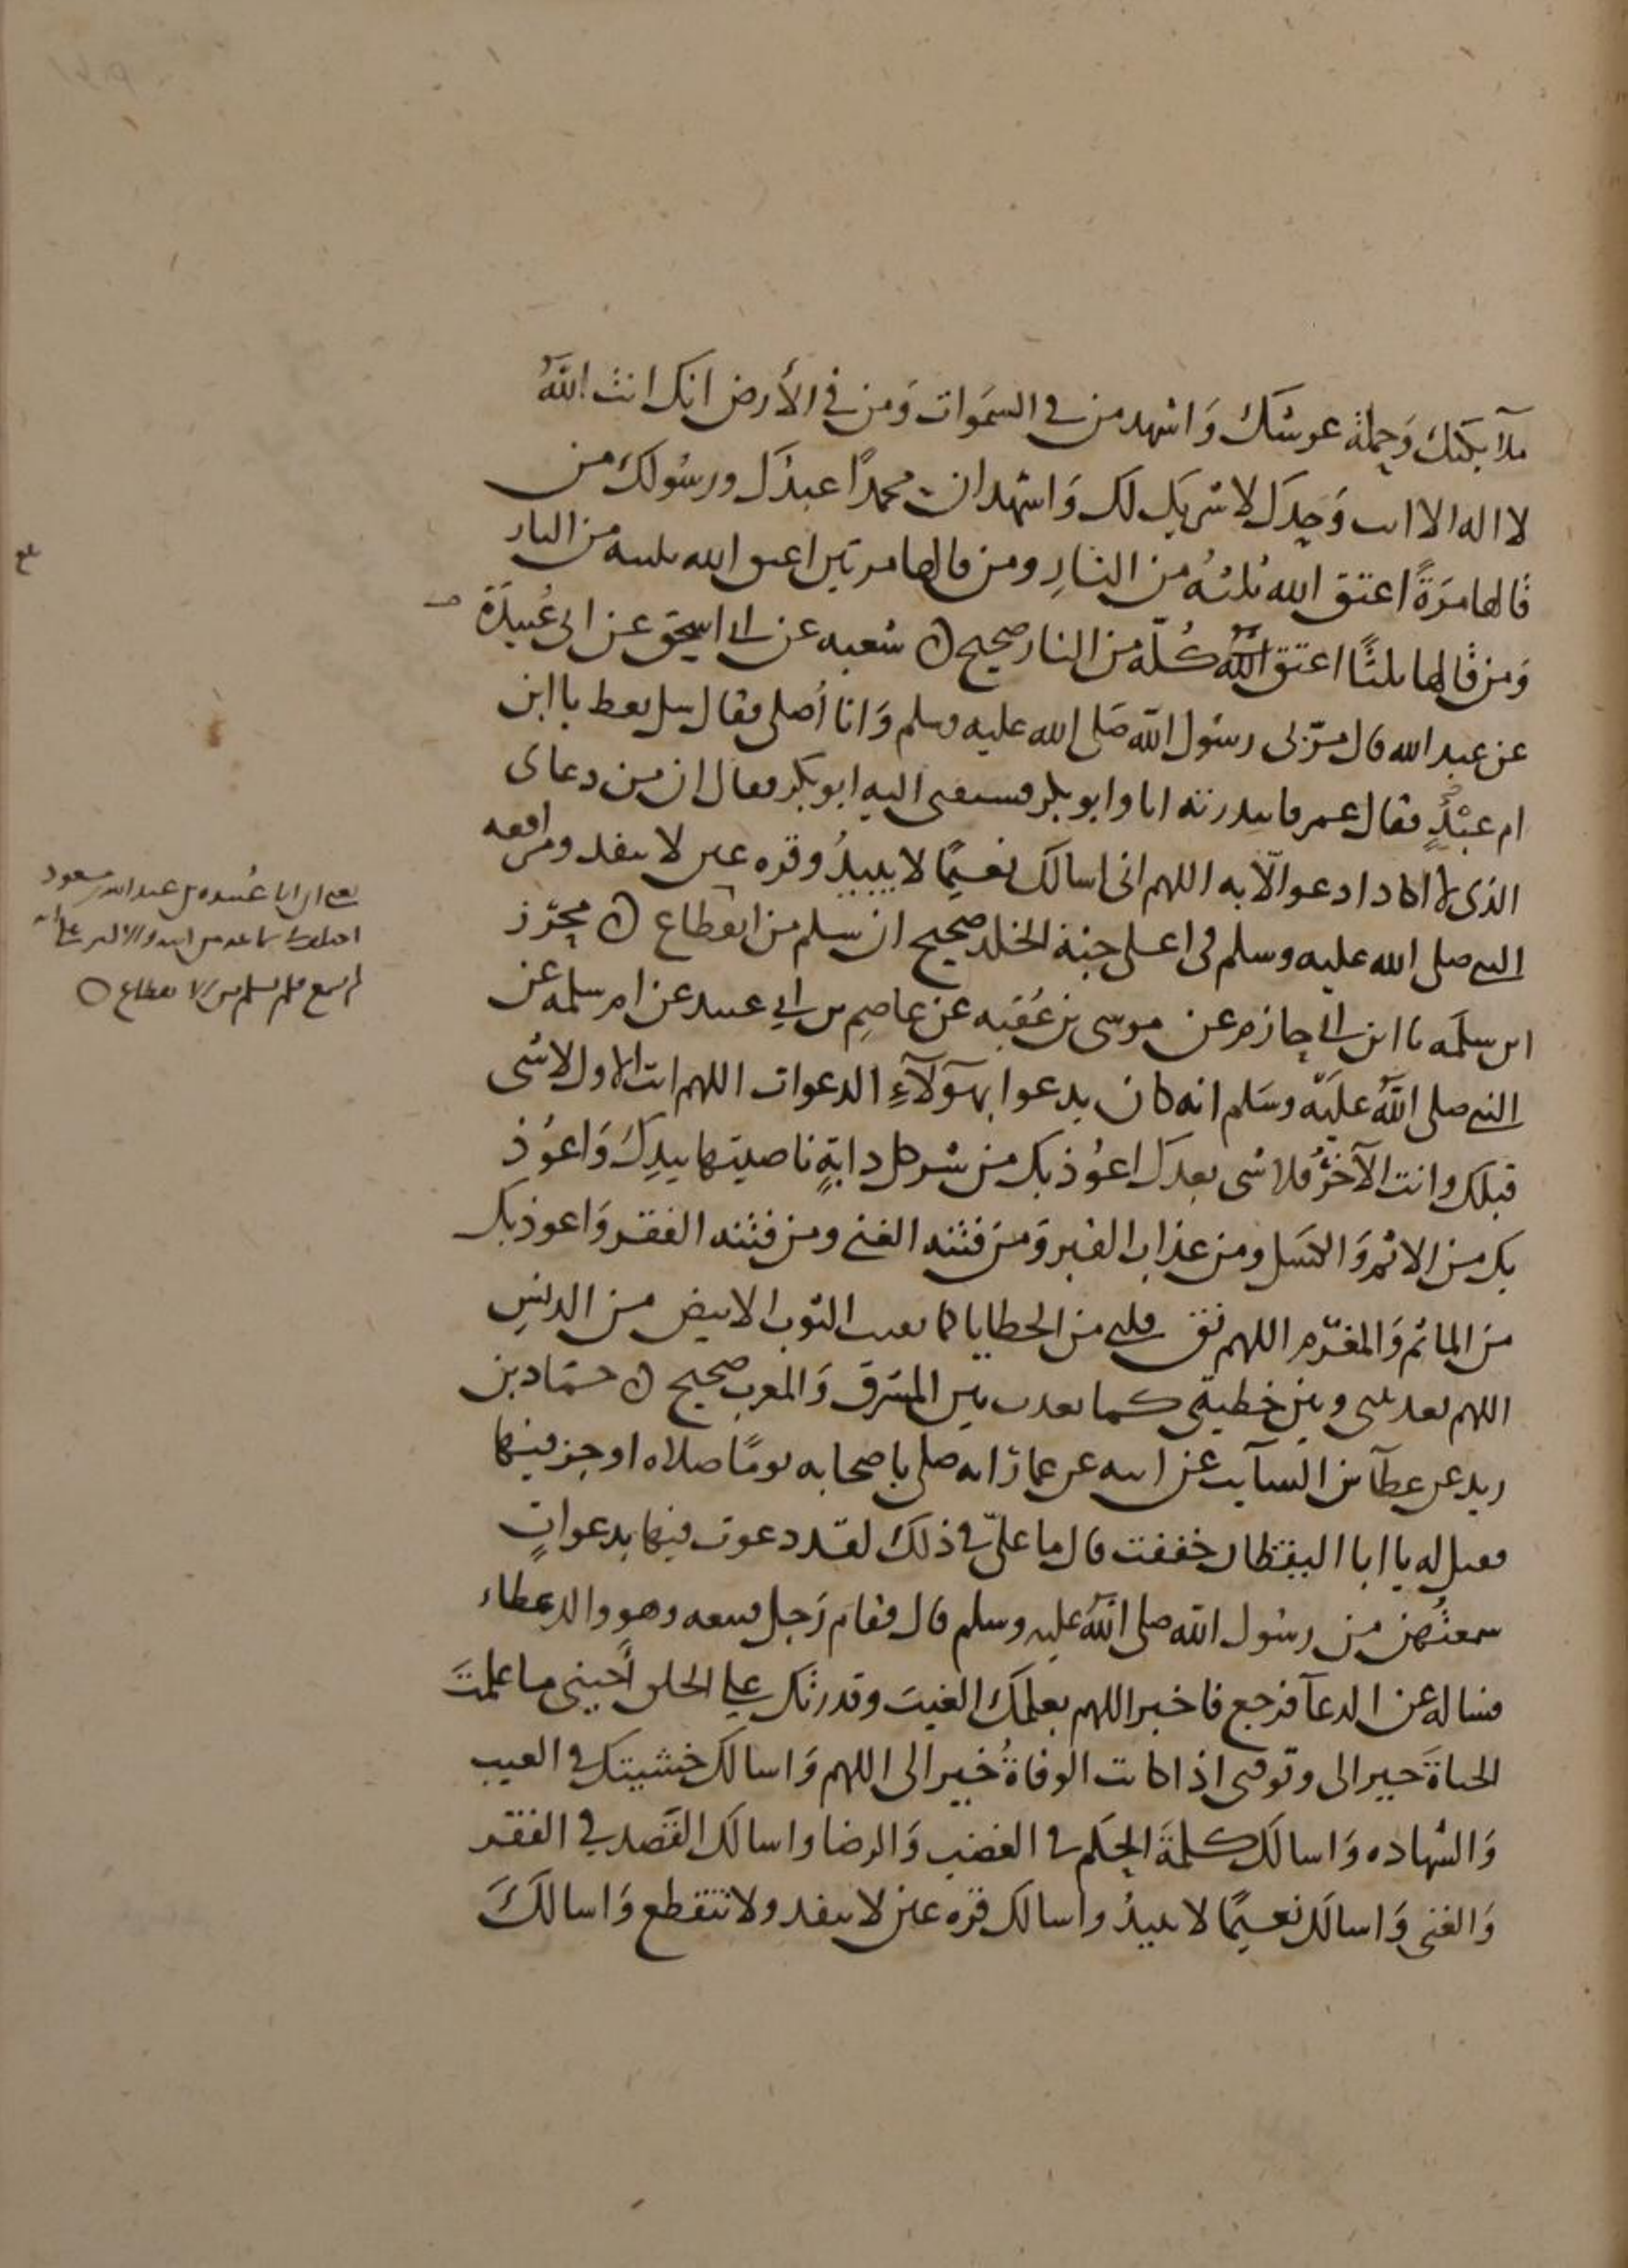 ملآئكتك وَحملة عرشك وَاشهد من في السمَوات وَمن في الأرض انك انت اللّهُ
لا اله الا انت وَحدك لا شريك لك وَاشهد ان محمدًا عبدك ورسُولك من
قالها مرَةً اعتق الله ثلثهُ من النارِ ومن قالها مرتين اعتق الله ثلثيه من النار
وَمن قالها ثلثًا اعتق اللّهُ كُلّه من النار صحيح ٥ شعبه عن ابي اسحق عن ابي عُبيدَة
عن عبد الله قال مرّ بي رسُول اللّه صَلى الله عليه وسلم وَانا أصلي فقال سل تعط يا ابن
ام عبْدٍ فقال عمر فابتدرته انا وابو بكر فسبقني اليه ابو بكر فقال ان من دعاى
الذى لا اكاد ادعوا الّا به اللهم انى اسالك نعيمًا لا يبيدُ وقره عين لا تنفد ومرافقه
النبي صلى الله عليه وسلم في اعلى جنة الخلد صحيح ان سلم من انقطاع ٥ محرّز
ابن سلمَه نا ابن ابي حازم عن موسى بن عُقبه عن عاصِم بن ابي عبيد عن ام سلمه عن
النبي صلى اللّهُ عليَه وسَلم انه كان يدعوا بهؤلآءِ الدعوات اللهم انت الاول لا شى
قبلك وانت الآخرُ فلا شى بعدك اعوُذ بك من شر كل دابةٍ ناصيتها بيدِكَ وَاعوُذ
بك من الاثم وَالكسَل ومن عذاب القبر وَمن فتنه الغنى ومن فتنه الفقر وَاعوذ بك
منَ الماثم وَالمغرَم اللهم نق قلبي من الخطايا كما نقيت الثوب الابيض من الدنسِ
اللهم بعد بيني وبين خطيتى كما بعدت بين المشرق وَالمغرب صحيح ٥ حمّاد بن
زيد عن عطآ بن السآيب عن ابيه عن عمار انه صلى باصحابه يومًا صلاه اوجز فيها
فقيل له يا ابا اليقظان خففت قال ما علىّ في ذلك لقد دعوت فيها بدعواتٍ
سمعتُهن من رسُول اللّه صلى اللّهُ عليه وسلم قال فقام رَجل فتبعه وهو والد عطاء
فساله عن الدعآ فرجع فاخبر اللهم بعلمك الغيبَ وقدرتك على الخلق أحينى ما علمتَ
الحياةَ خيرا لى وتوفنى اذا كانت الوفاةُ خيرا لى اللهم وَاسالك خشيتك في الغيب
وَالشهاده وَاسالَك كلمَة الحكم في الغضب وَالرضا واسالك القَصد في الفقر
وَالغنى وَاسالك نعيمًا لا يبيدُ واسالك قره عين لا تنفد ولا تنقطع وَاسالكَ
يعني ان ابا عُبيده بن عبد الله بن مسعود
اختلف في سماعه من ابيه والاكثر على انه
لم يسمع فلم يسلم من الانقطاع ٥